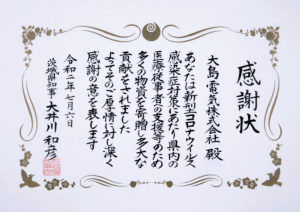 感謝状
大島電気株式会社 殿
あなたは新型コロナウイルス
感染症対策にあたり県内の
医療従事者の支援等のため
多くの物資を寄贈し多大な
貢献をされました
よってその功績に対し深く
感謝の意を表します
令和二年七月六日
茨城県知事 大井川 和彦